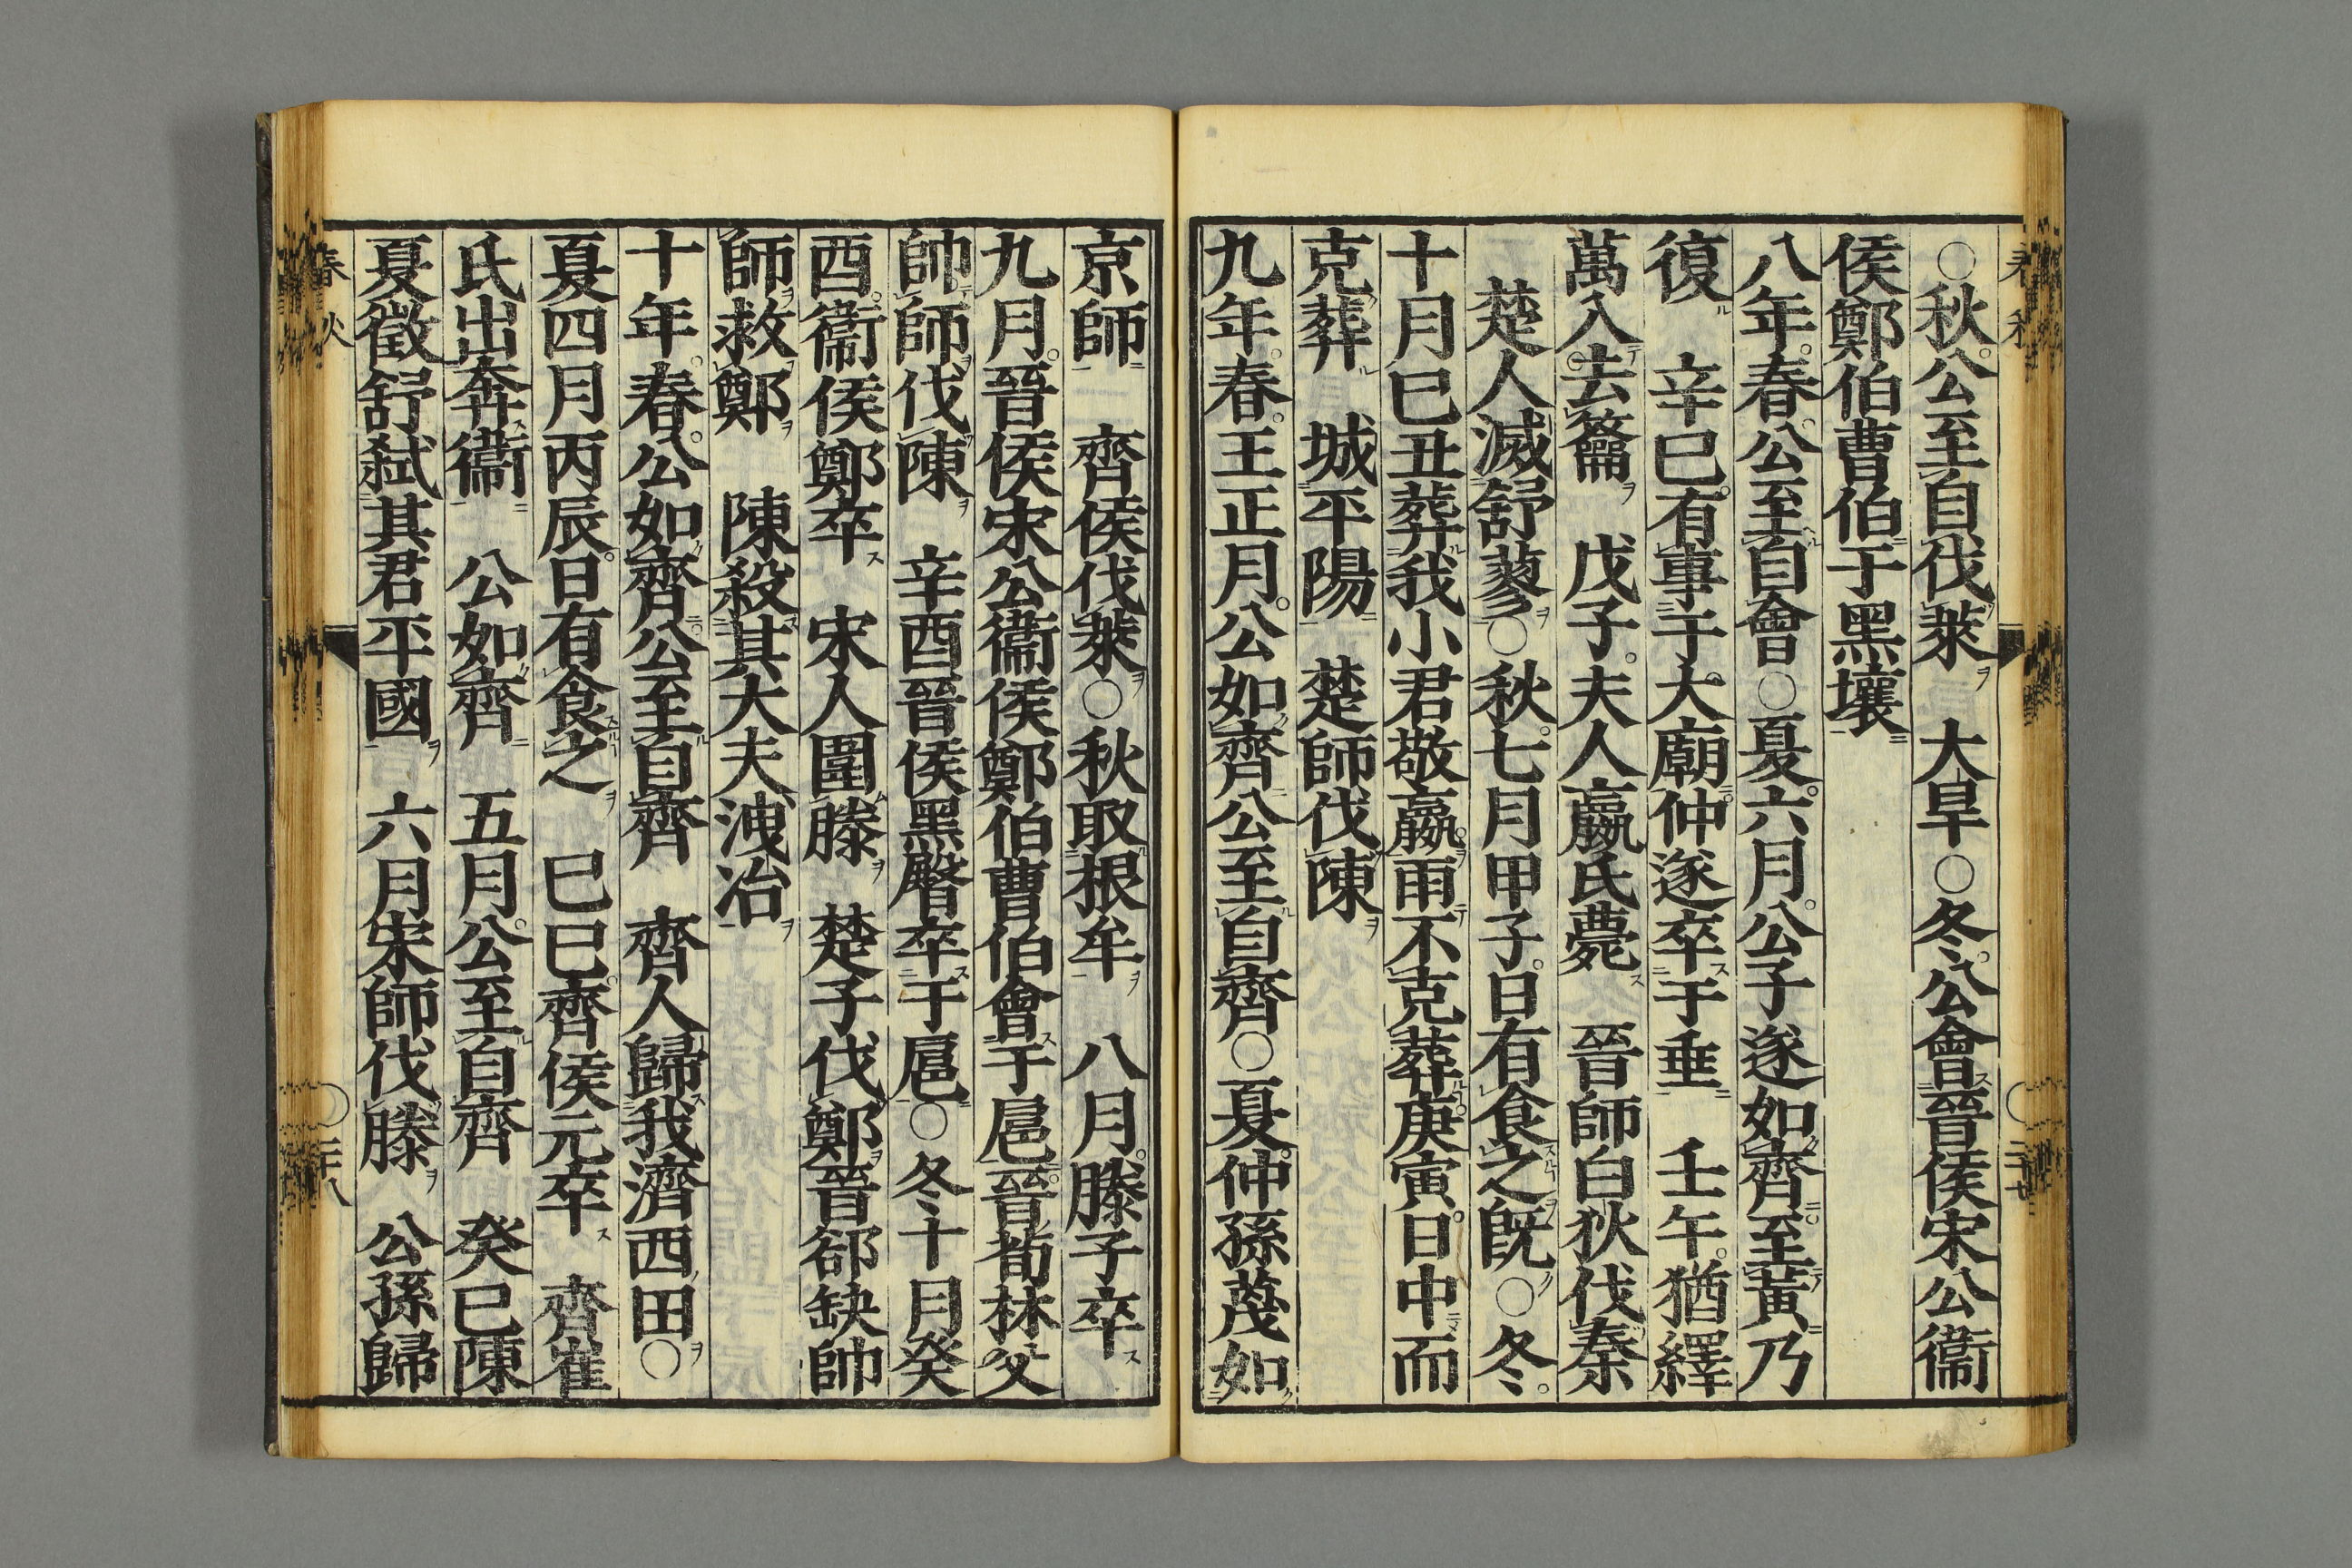 ○秋公至自伐萊　大旱○冬公會晉侯宋公衞
侯鄭伯曹伯于黑壤
八年春公至自會○夏六月公子遂如齊至黃乃
復　辛巳有事于大廟仲遂卒于垂　壬午猶繹
萬入去籥　戊子夫人嬴氏薨　晉師白狄伐秦
楚人滅舒蓼○秋七月甲子日有食之既○冬
十月己丑葬我小君敬嬴雨不克葬庚寅日中而
克葬　城平陽　楚師伐陳
九年春王正月公如齊公至自齊○夏仲孫蔑如
京師　齊侯伐萊○秋取根牟　八月滕子卒
九月晉侯宋公衞侯鄭伯曹伯會于扈晉荀林父
帥師伐陳　辛酉晉侯黑臀卒于扈○冬十月癸
酉衞侯鄭卒　宋人圍滕　楚子伐鄭晉郤缺帥
師救鄭　陳殺其大夫洩冶
十年春公如齊公至自齊　齊人歸我濟西田○
夏四月丙辰日有食之　己巳齊侯元卒　齊崔
氏出奔衞　公如齊　五月公至自齊　癸巳陳
夏徵舒弑其君平國　六月宋師伐滕　公孫歸
春秋
○二十八